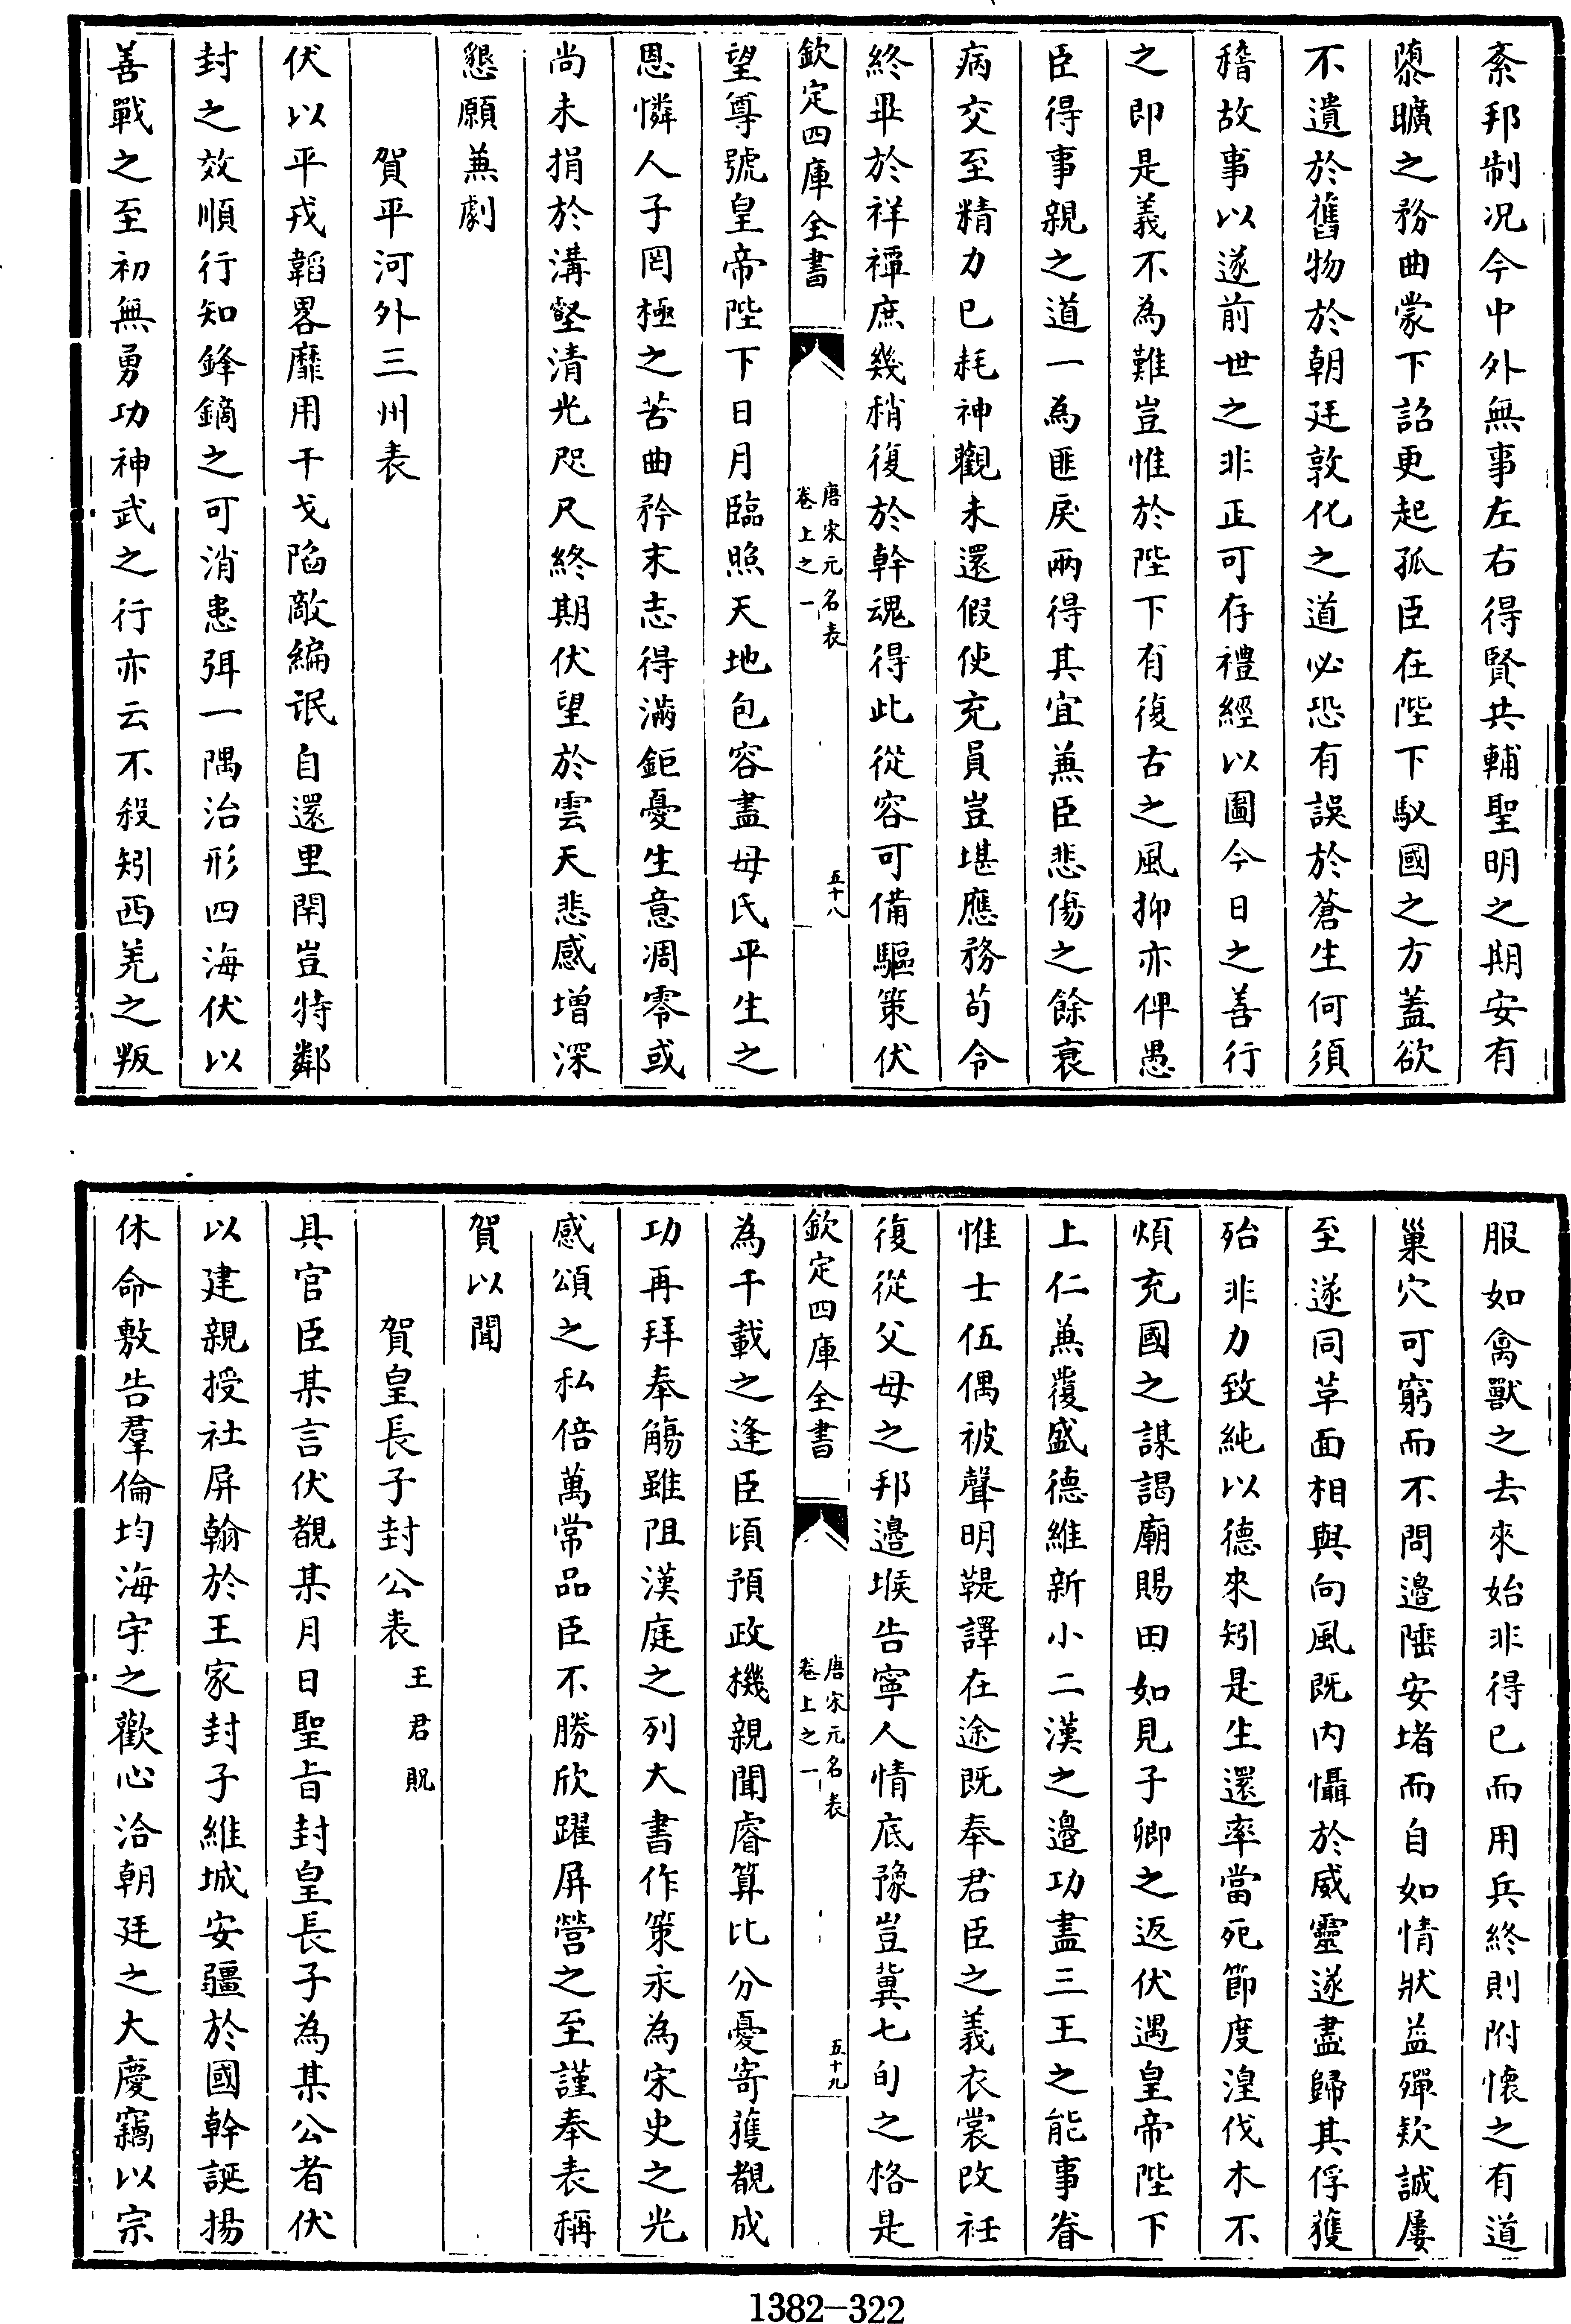 紊邦制况今中外無事左右得賢共輔聖明之期安有
隳曠之務曲蒙下詔更起孤臣在陛下馭國之方蓋欲
不遺於舊物於朝廷敦化之道必恐有誤於蒼生何須
稽故事以遂前世之非正可存禮經以圖今日之善行
之即是義不為難豈惟於陛下有復古之風抑亦俾愚
臣得事親之道一為匪戾兩得其宜兼臣悲傷之餘衰
病交至精力已耗神觀未還假使充員豈堪應務苟令
終畢於祥禫庶幾稍復於幹魂得此從容可備驅策伏
欽定四庫全書
唐宋元名表
卷上之一
五十八
望尊號皇帝陛下日月臨照天地包容盡母氏平生之
恩憐人子罔極之苦曲矜末志得滿鉅憂生意凋零或
尚未捐於溝壑清光咫尺終期伏望於雲天悲感增深
懇願兼劇
賀平河外三州表
伏以平戎韜畧靡用干戈陷敵編氓自還里閈豈特鄰
封之效順行知鋒鏑之可消患弭一隅治形四海伏以
善戰之至初無勇功神武之行亦云不殺矧西羌之叛
服如禽獸之去來始非得已而用兵終則附懷之有道
巢穴可窮而不問邊陲安堵而自如情狀益殫欵誠屢
至遂同草面相與向風既内懾於威靈遂盡歸其俘獲
殆非力致純以德來矧是生還率當死節度湟伐木不
煩充國之謀謁廟賜田如見子卿之返伏遇皇帝陛下
上仁兼覆盛德維新小二漢之邊功盡三王之能事眷
惟士伍偶被聲明鞮譯在途既奉君臣之義衣裳改衽
復從父母之邦邊堠告寧人情底豫豈冀七旬之格是
欽定四庫全書
唐宋元名表
卷上之一
五十九
為千載之逢臣頃預政機親聞睿算比分憂寄獲覩成
功再拜奉觴雖阻漢庭之列大書作策永為宋史之光
感頌之私倍萬常品臣不勝欣躍屏營之至謹奉表稱
賀以聞
賀皇長子封公表 王君貺
具官臣某言伏覩某月日聖旨封皇長子為某公者伏
以建親授社屏翰於王家封子維城安疆於國幹誕揚
休命敷告羣倫均海宇之歡心洽朝廷之大慶竊以宗
1382-322